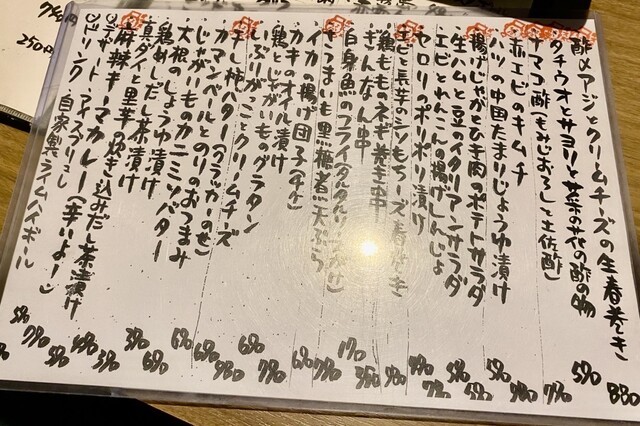 酢〆アジとクリームチーズの生春巻き 880
タチウオとサヨリと菜の花の酢の物 590
ナマコ酢(もみじおろしと土佐酢) 790
赤エビのキムチ
ハツの中国たまりじょうゆ漬け
揚げじゃがとひき肉のポテトサラダ
生ハムと豆のイタリアンサラダ
エビとれんこんの揚げしんじょ
セロリのポリポリ漬け
エビと長芋のシソもちーズ春巻き
鶏もものネギ巻き串
ぎんなん串
白身魚のフライ
さつまいも黒糖煮天ぷら
イカの揚げ団子(4ケ)
カキのオイル漬け
鶏とじゃがいものグラタン
いぶりがっことクリームチーズ
干し柿バター(クラッカーのせ)
カマンベールとのりのおつまみ
じゃがいものカニミソバター
大根のしょうゆ漬け
鶏めしだし茶漬け
真ダイと里芋の炊き込みだし茶漬け
麻辣キーマカレー(辛いよー)
デザート アイスブリュレ
ドリンク 自家製ライムハイボール
250円